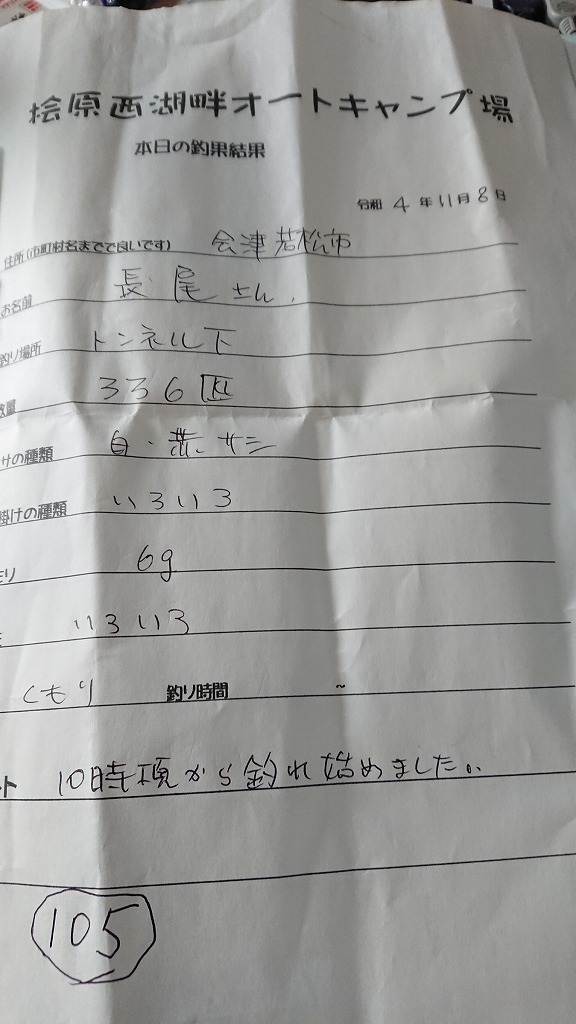 桧原西湖畔オートキャンプ場
本日の釣果結果
令和 4 年 11 月 8 日
住所(市町村名までで良いです) 会津若松市
お名前 長尾さん
釣り場所 トンネル下
数量 336匹
サの種類 白・赤サシ
掛けの種類 いろいろ
モリ 6g
いろいろ
くもり 釣り時間 ~
ト 10時頃から釣れ始めました。
105